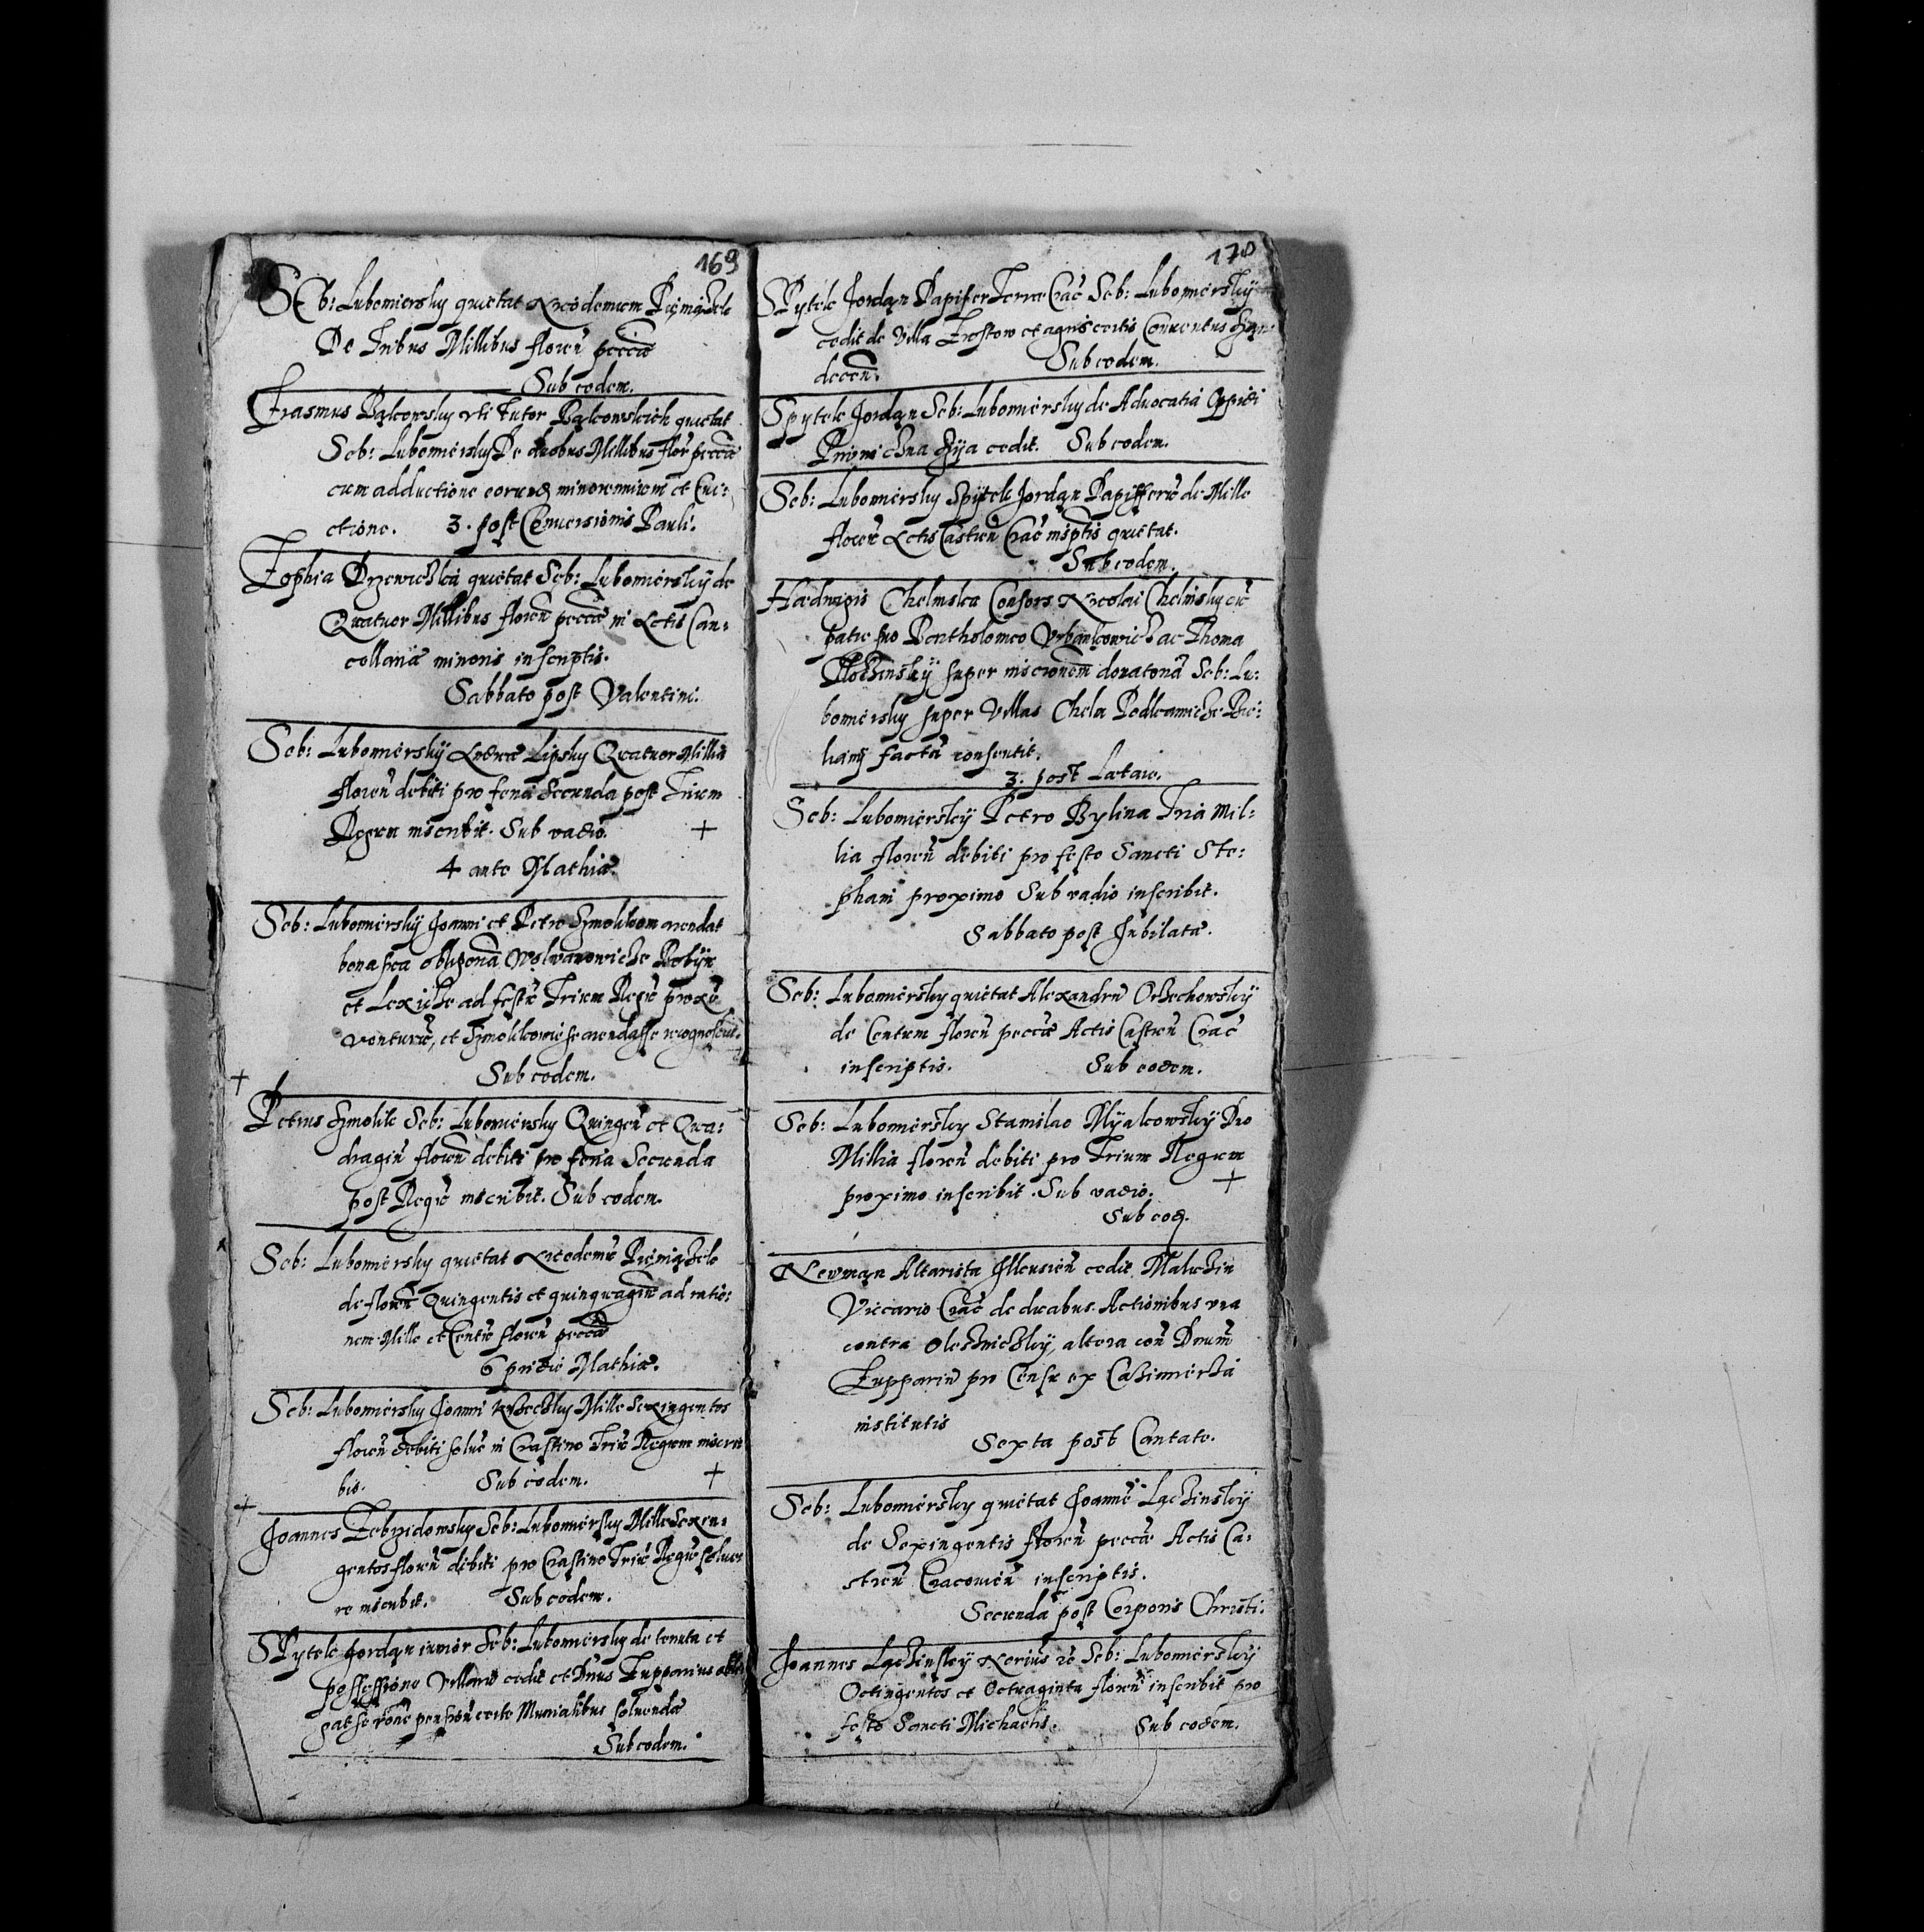 169
Seb: Lubomiersky quietat Nicodemum Pieniążek
De Tribus Millibus floren pecca
Sub eodem.
Erasmus Balcowsky uti Tutor Balcowskich quietat
Seb: Lubomiersky De duobus Millibus flor pecca
cum adductione eorund minorennium et Evi:
ctione. 3. post Conversionis Pauli.
Zophia quietat Seb: Lubomierskÿ de
Quatuor Millibus floren pecca in Actis Can:
cellariæ minoris inscriptis.
Sabbato post Valentini.
Seb: Lubomierskÿ Andreæ Lipsky Quatuor Millia
floren debiti pro feria Secunda post Trium
Regum inscribit. Sub vadio. +
4 ante Mathiæ.
Seb: Lubomierskÿ Joanni et Petro Szmolikom arendat
bona sua obligena
et ad festu Trium Regu proxe
venturu, et se arendasse recognoscut.
Sub eodem.
+
Petrus Szmolik Seb: Lubomiersky Quingen et Qua:
dragin floren debiti pro feria Secunda
post Regu inscribit. Sub eodem.
Seb: Lubomiersky quietat Nicodemu Pieniążek
de floren Quingentis et quinquagin ad ratio:
nem Mille et Centu floren pecca
6 pridie Mathiæ.
Seb: Lubomiersky Joanni Mille Sexingentos
floren debiti solue in Crastino Triu Regum inscri
bit. Sub eodem. +
+
Joannes Zebrzidowsky Seb: Lubomiersky Mille Sexin:
gentos floren debiti pro Crastino Triu Regu solue
re inscribit. Sub eodem.
SPytek Jordan iunior Seb: Lubomiersky de tenuta et
possessione Villaru cedit et Dnus Zupparius obli
gat se rone pension certe Monialibus soluenda
Sub eodem.
170
SPytek Jordan Dapifer Terræ Crac Seb: Lubomierskÿ
cedit de Villa et agris certis Conventus San:
decen. Sub eodem.
Spytek Jordan Seb: Lubomiersky de Advocatia Oppidi
cedit. Sub eodem.
Seb: Lubomiersky Spÿtek Jordan Dapifferu de Mille
floren Actis Castren Crac insptis quietat.
Sub eodem.
Hedvigis Chelmska Consors Nicolai Chelmsky cu
patre suo Bartholomeo Urbankowicz ac Thoma
Ploczinskÿ super inscrionem donatoria Seb: Lu:
bomiersky super Villas Chela
facta consentit.
3. post Lætare.
Seb: Lubomierskÿ Petro Bylina Tria Mil:
lia floren debiti pro festo Sancti Ste:
phani proximo Sub vadio inscribit.
Sabbato post Jubilatæ.
Seb: Lubomierskÿ quietat Alexandru Orzechowskÿ
de Centum floren pecca Actis Castren Crac
inscriptis. Sub eodem.
Seb: Lubomierskÿ Stanislao Myskowskÿ Duo
Millia floren debiti pro Trium Regum
proximo inscribit. Sub vadio. +
Sub eod.
Newman Altarista Ilkusien cedit Maluchin
Viccario Crac de duabus Actionibus una
contra Olesznickÿ, altera con Dnum
Zupparin pro Censu ex Cazimierza
institutis
Sexta post Cantate.
Seb: Lubomierskÿ quietat Joanne Lączinskÿ
de Sexingentis floren pecca Actis Ca:
stren Cracovien inscriptis.
Secunda post Corporis Christi.
Joannes Lączinskÿ Seb: Lubomierskÿ
Octingentos et Octuaginta floren inscribit pro
festo Sancti Michaelis. Sub eodem.